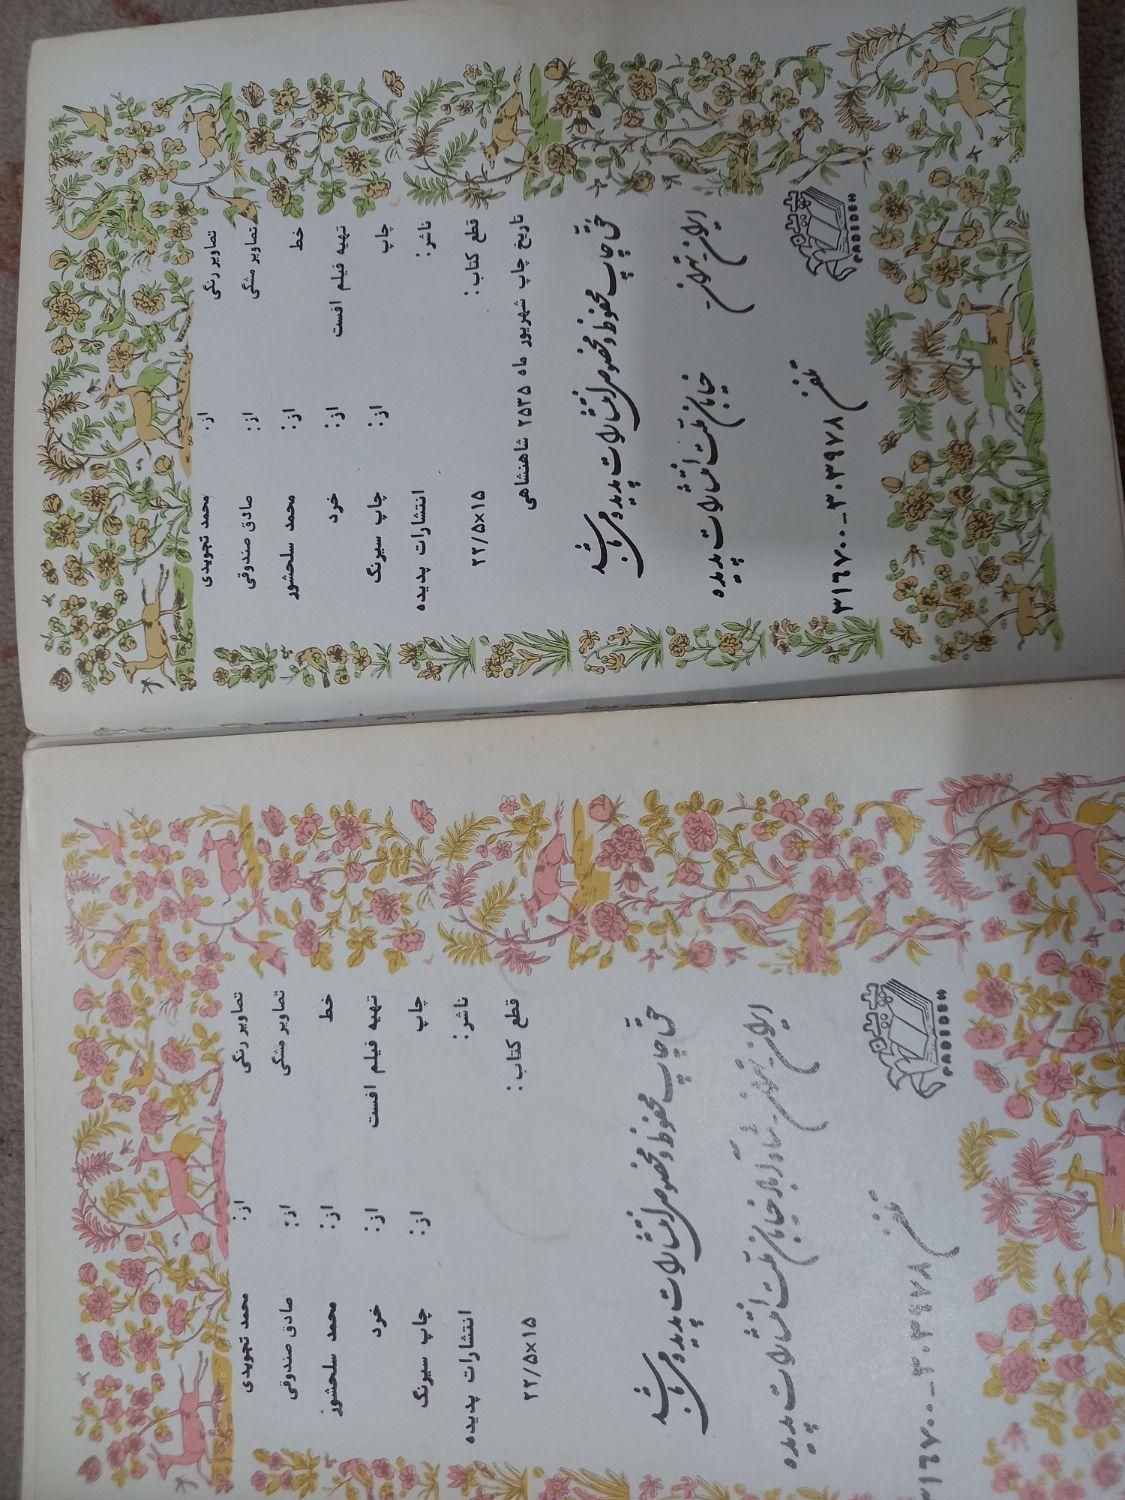 تصاویر رنگی از: محمد تجویدی
تصاویر مشکی از: صادق صندوقی
خط از: محمد سلحشور
تهیه فیلم افست از: خرد
چاپ از: چاپ سیرنگ
ناشر: انتشارات پدیده
قطع کتاب: ۲۲/۵×۱۵
تاریخ چاپ شهریور ماه ۲۵۳۵ شاهنشاهی
حق چاپ محفوظ و مخصوص انتشارات پدیده میباشد
ایران - تهران - خیابان ملت انتشارات پدیده
تلفن ۳۰۳۹۷۸ - ۳۱۶۷۰۰
PADIDEH
تصاویر رنگی از: محمد تجویدی
تصاویر مشکی از: صادق صندوقی
خط از: محمد سلحشور
تهیه فیلم افست از: خرد
چاپ از: چاپ سیرنگ
ناشر: انتشارات پدیده
قطع کتاب: ۲۲/۵×۱۵
حق چاپ محفوظ و مخصوص انتشارات پدیده میباشد
ایران - تهران - خیابان ملت انتشارات پدیده
تلفن ۳۰۳۹۷۸ - ۳۱۶۷۰۰
PADIDEH